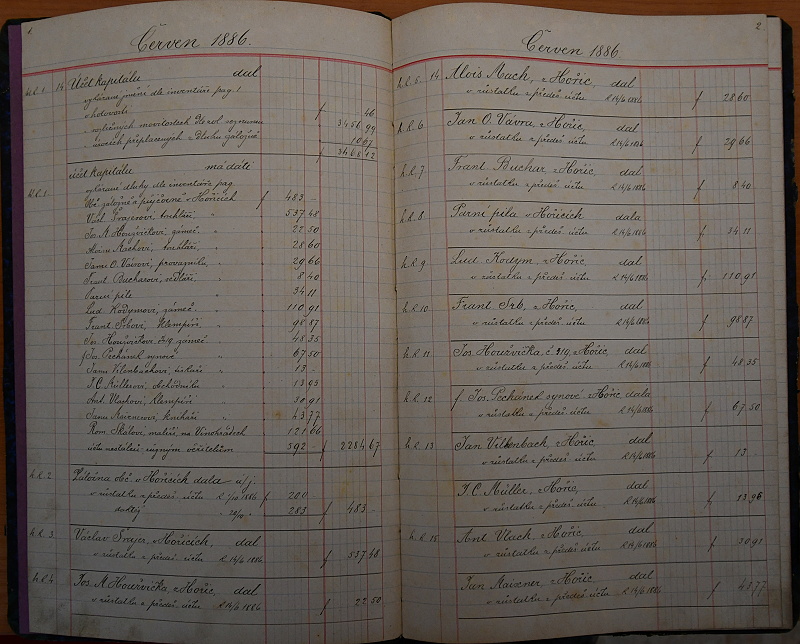 1.
Červen 1886.
hl.R. 1 14 Účet kapitálu dal
vybírání jmění dle inventáře pag. 1
v hotovosti f 46
3456 99
f 3468 12
Účet kapitálu má dáti
hl.R. 1.
vybírání dluhy dle inventáře pag.
v Hořicích f 483 –
Václ. Šrajerovi, truhláři, „ 537 48
Jos. M. Houžvičkovi, zámeč. „ 22 50
Aloisu Machovi, „ 28 60
Janu O. Vávrovi, provazníku „ 29 66
Frant. Bucharovi, „ 8 40
Parní pile „ 34 11
Lud. Kodymovi, zámeč. „ 110 91
Frant. Srbovi, klempíři „ 98 87
Jos. Houžvičkovi č. 219 zámeč. 48 35
f. Jos. Pecháček synové „ 67 50
Janu Vilenbachovi, „ 13 –
J. C. Müllerovi, obchodníku 13 95
Ant. Vlachovi, klempíři 50 91
Janu Maixnerovi, knihaři „ 43 77
Rom. Škálovi, malíři, na Vinohradech 121 66
účtu nestálému různým věřitelům 592 f 2284 67
hl.R. 2 Záložna obč. v Hořicích dala
v zůstatku z předeš. účtu f 200
283 f 483 –
hl.R. 3. Václav Šrajer, v Hořicích, dal
v zůstatku z předeš. účtu R 14/6 1886 f 537 48
hl.R. 4 Jos. M. Houžvička, z Hořic, dal
v zůstatku z předeš. účtu R 14/6 1886 f 22 50
2
Červen 1886.
hl.R. 5. 14 Alois Mach, z Hořic, dal
v zůstatku z předeš. účtu R 14/6 1886 f 28.60
hl.R. 6. Jan O. Vávra, z Hořic, dal
v zůstatku z předeš. účtu R 14/6 1886 f 29 66
hl.R. 7 Frant. Buchar, z Hořic, dal
v zůstatku z předeš. účtu R 14/6 1886 f 8.40
hl.R. 8 Parní pila v Hořicích dala
v zůstatku z předeš. účtu R 14/6 1886 f 34 11
hl.R. 9 Lud. Kodym, z Hořic dal
v zůstatku z předeš. účtu R 14/6 1886 f 110 91
hl.R. 10. Frant. Srb, z Hořic, dal
v zůstatku z předeš. účtu R 14/6 1886 f 98 87
hl.R. 11 Jos. Houžvička, č. 219, Hořic, dal
v zůstatku z předeš. účtu R 14/6 1886 f 48.35
hl.R. 12 f. Jos. Pecháček synové z Hořic dala
v zůstatku z předeš. účtu R 14/6 1886 f 67.50
hl.R. 13 Jan Vilenbach, z Hořic dal
v zůstatku z předeš. účtu R 14/6 1886 f 13 –
J. C. Müller, z Hořic dal
v zůstatku z předeš. účtu R 14/6 1886 f 13 95
hl.R. 15. Ant. Vlach, z Hořic, dal
v zůstatku z předeš. účtu R 14/6 1886 f 50 91
Jan Maixner, z Hořic, dal
v zůstatku z předeš. účtu R 14/6 1886 f 43 77